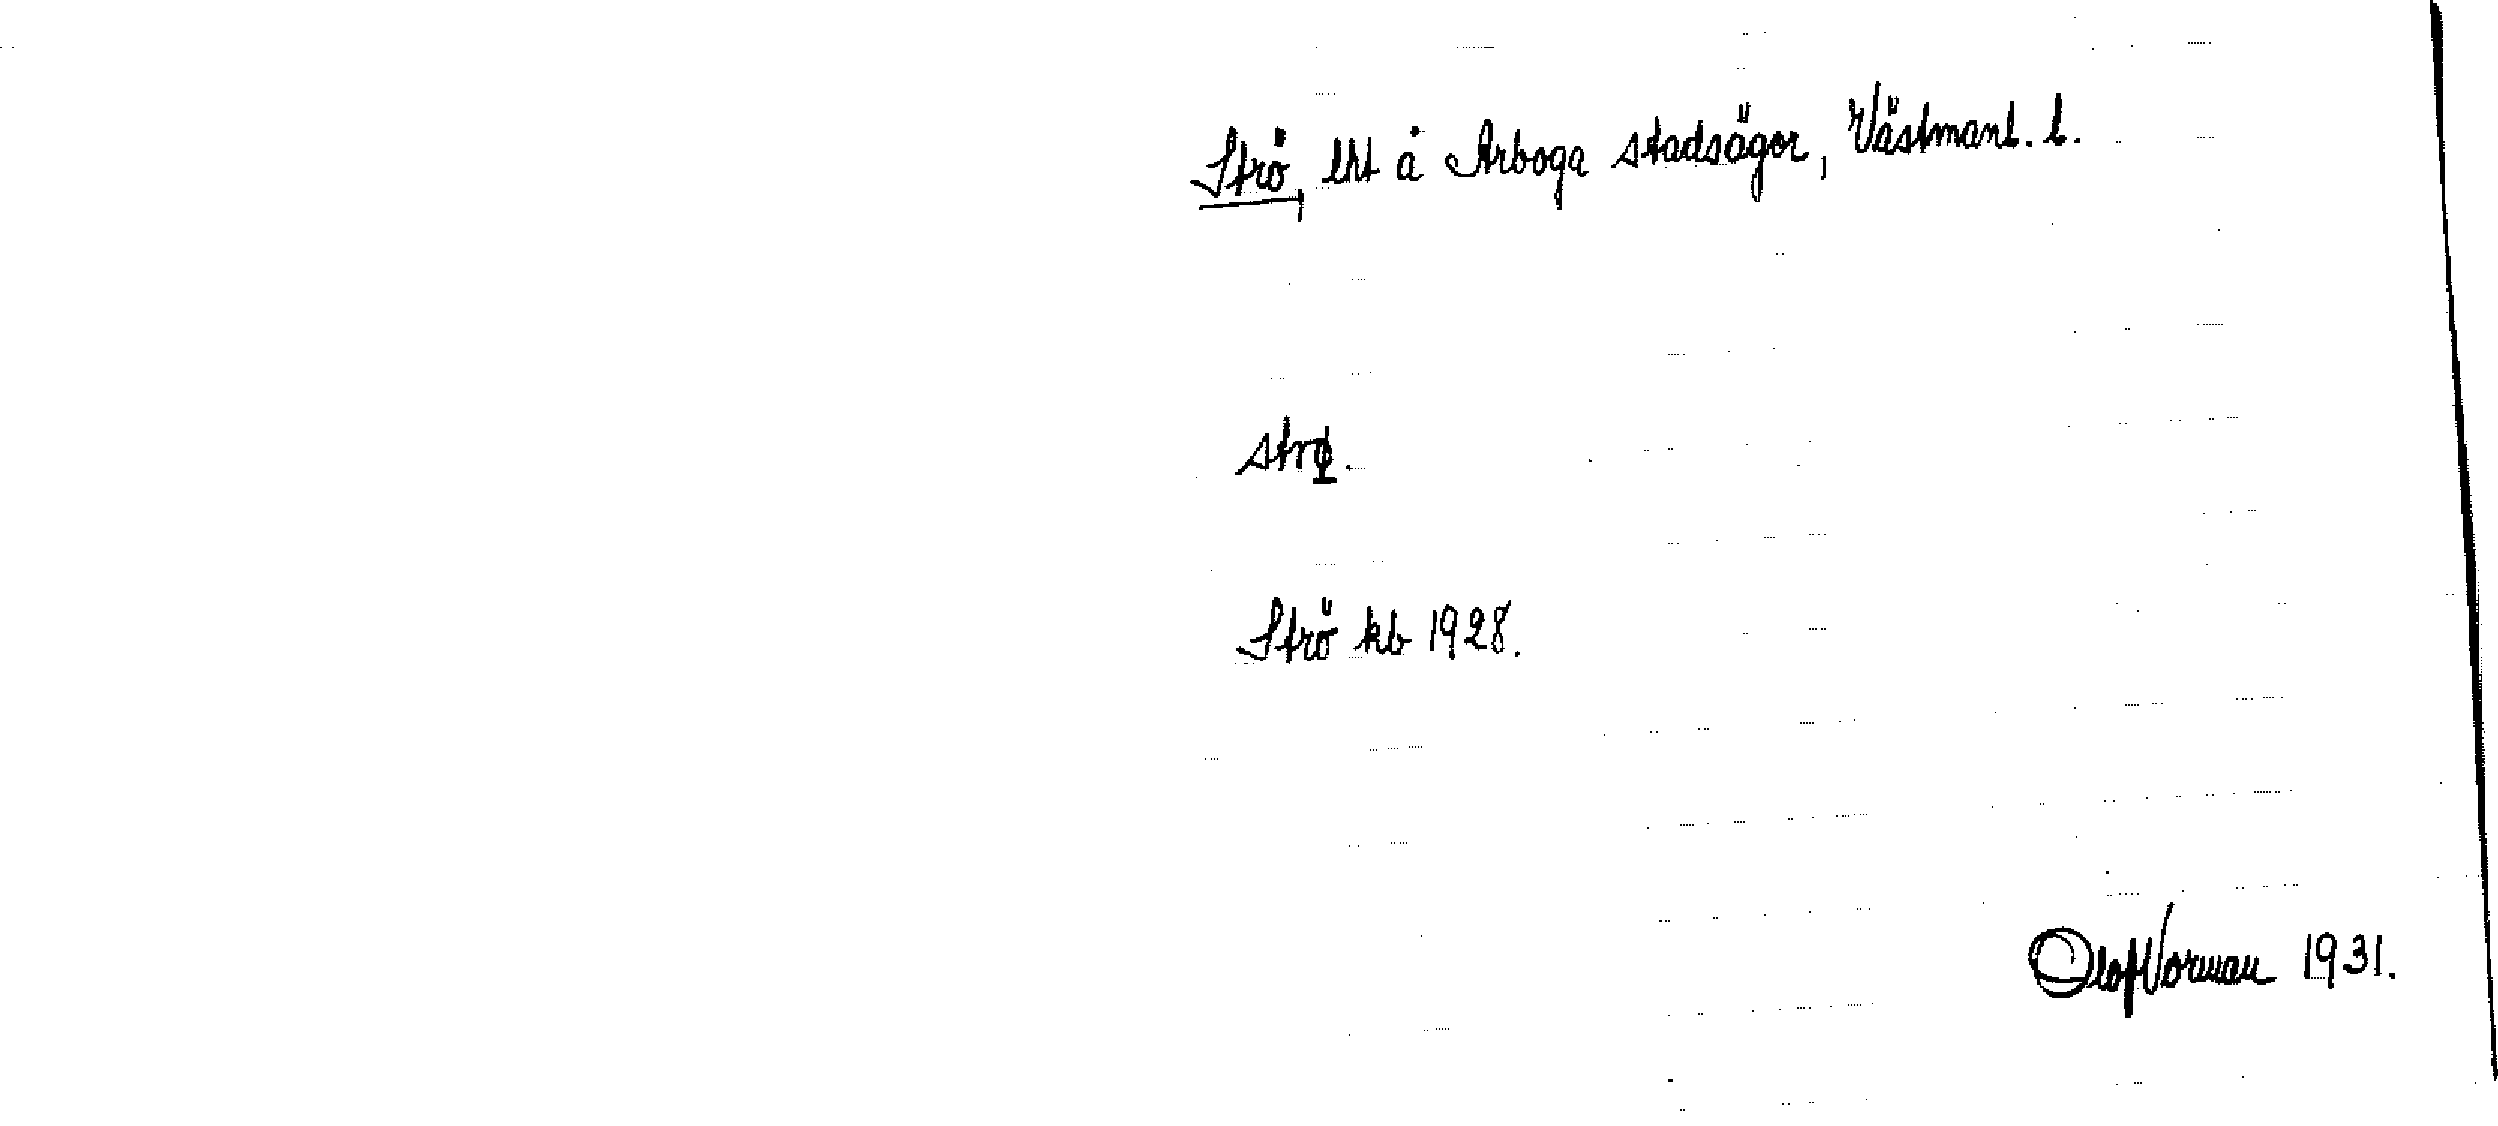 Strö, lht å Arboga stadsägor, Västmanl. l.
strφ.
Strö kb 1928.
Olof Vorman 1931.